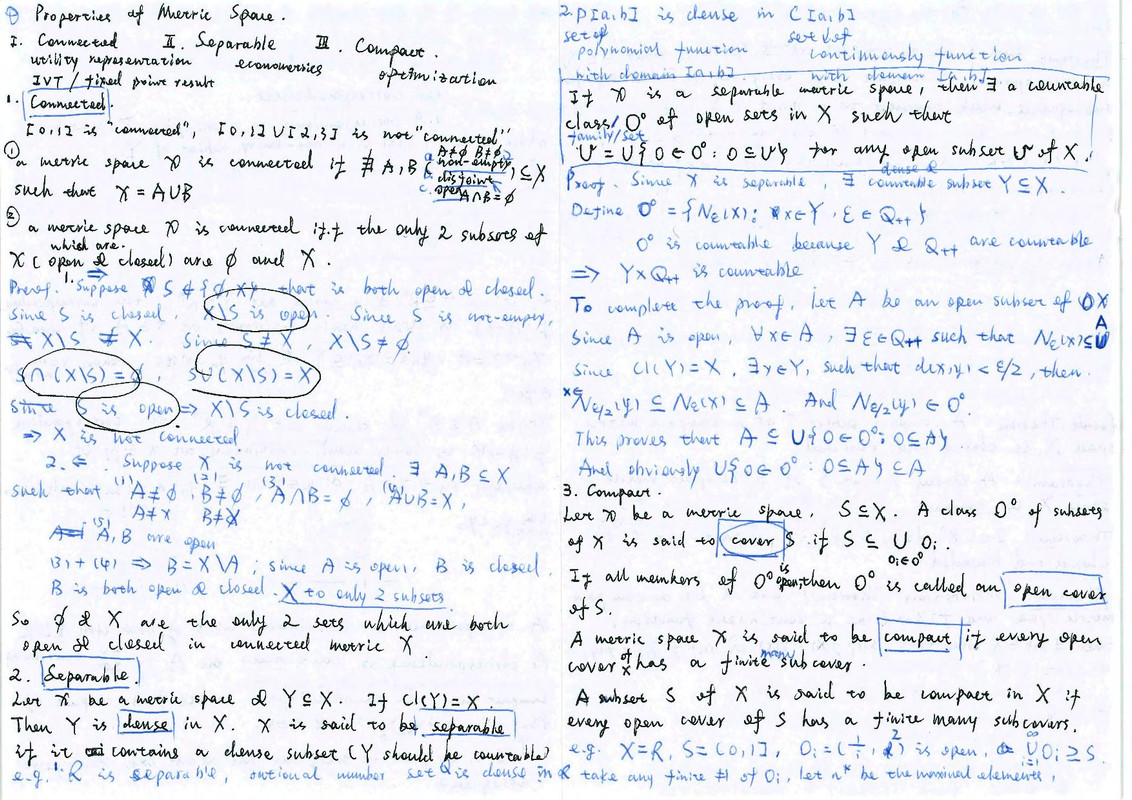 ① Properties of Metric Space.
I. Connected II. Separable III. Compact.
utility representation economics optimization
IVT / fixed point result
1. Connected.
[0,1] is "connected", [0,1]∪[2,3] is not "connected"
① a metric space X is connected if ∄ A,B (a. non-empty A≠ϕ B≠ϕ b. disjoint c. open A∩B=ϕ) ⊆X
such that X = A∪B
② a metric space X is connected iff the only 2 subsets of
which are.
X (open & closed) are ϕ and X.
Proof. 1. ⇒ Suppose S ∉ {ϕ, X} that is both open & closed.
Since S is closed, X\S is open. Since S is not-empty,
X\S ≠ X. Since S≠X, X\S ≠ ϕ
S∩(X\S) = ϕ, S∪(X\S) = X
Since S is open ⇒ X\S is closed.
⇒ X is not connected
2. ⇐. Suppose X is not connected. ∃ A,B ⊆ X
such that (1) A≠ϕ, (2) B≠ϕ, (3) A∩B=ϕ, (4) A∪B=X,
A≠X B≠X
(5) A, B are open
(3)+(4) ⇒ B=X\A; since A is open, B is closed.
B is both open & closed. X to only 2 subsets.
So ϕ & X are the only 2 sets which are both
open & closed in connected metric X.
2. Separable.
Let X be a metric space & Y⊆X. If Cl(Y)=X.
Then Y is dense in X. X is said to be separable
if it contains a dense subset (Y should be countable)
e.g. 1. R is separable, rational number set Q is dense in R
2. P[a,b] is dense in C[a,b]
set of set of
polynomial function continuously function
with domain [a,b]. with domain [a,b].
If X is a separable metric space, then ∃ a countable
class/ O° of open sets in X such that
family/set
U = ∪{O∈O°: O⊆U} for any open subset U of X.
Proof. Since X is separable, ∃ dense & countable subset Y⊆X.
Define O° = {Nε(x): x∈Y, ε∈Q++}
O° is countable because Y & Q++ are countable
⇒ Y×Q++ is countable
To complete the proof, let A be an open subset of X
Since A is open ∀x∈A, ∃ε∈Q++ such that Nε(x)⊆A
Since Cl(Y)=X, ∃y∈Y, such that d(x,y) < ε/2, then.
x∈Nε/2(y) ⊆ Nε(x) ⊆ A And Nε/2(y) ∈ O°.
This proves that A ⊆ ∪{O∈O°: O⊆A}
And obviously ∪{O∈O°: O⊆A} ⊆A
3. Compact.
Let X be a metric space, S⊆X. A class O° of subsets
of X is said to cover S if S ⊆ ∪ Oi.
Oi∈O°
If all members of O° is open, then O° is called an open cover
of S.
A metric space X is said to be compact if every open
cover of X has a finite many subcover.
A subset S of X is said to be compact in X if
every open cover of S has a finite many subcovers.
e.g. X=R, S=(0,1], Oi=(1/i, 2) is open, ∞∪i=1 Oi ⊇ S.
take any finite # of Oi, let n* be the maximal elements,